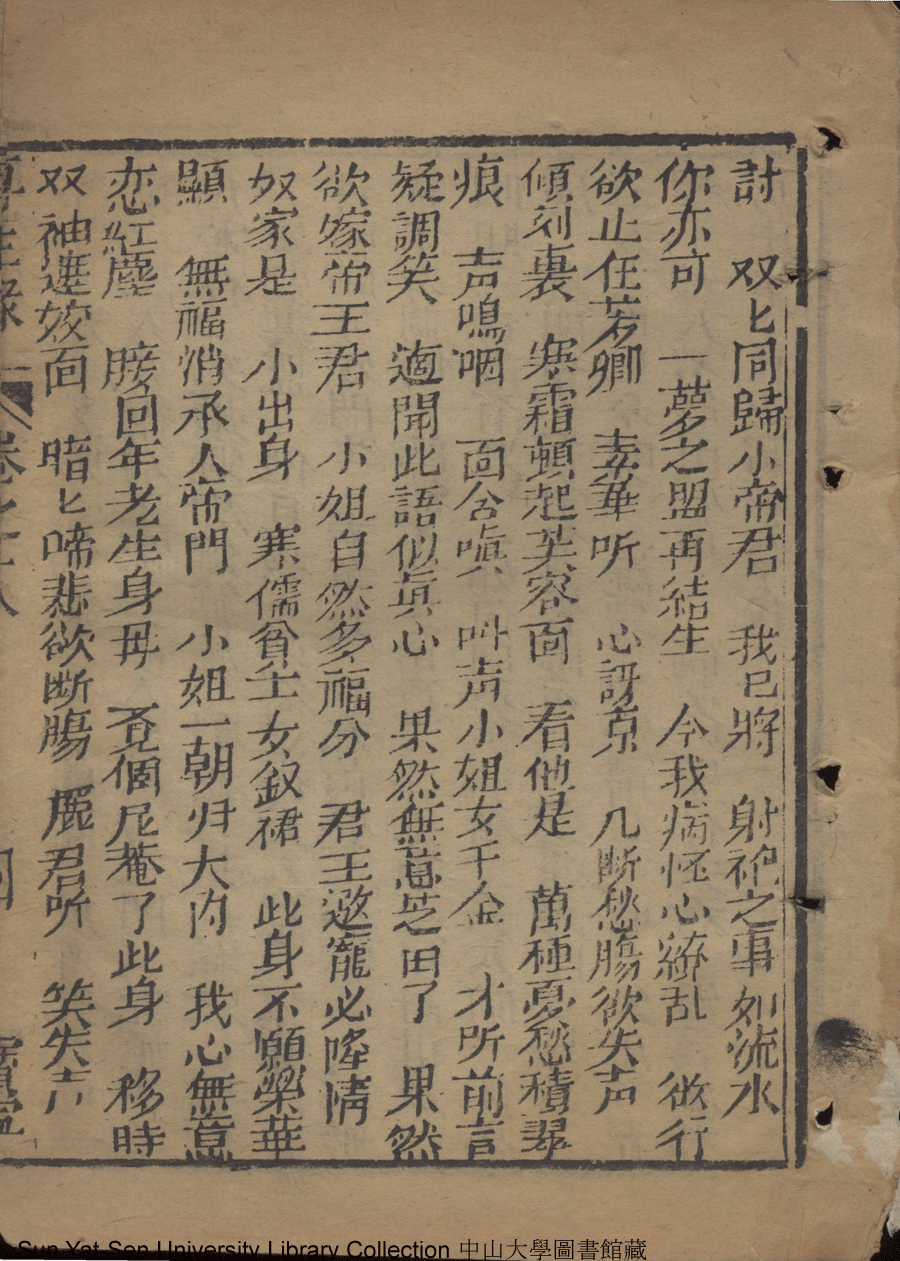 討　双匕同歸小帝君　我已將　射祀之事如流水
你亦可　一夢之盟再結生　今我病怪心緒乱　欲行
欲止任芳卿　素華听　心訝京　几断愁腸欲失声
傾刻裏　寒霜頓起芙容面　看他是　萬種憂愁積翠
痕　声鳴咽　面含嗔　叫声小姐女千金　才所前言
疑調笑　適聞此語似真心　果然無意芝田了　果然
欲嫁帝王君　小姐自然多福分　君王邀寵必隆情
奴家是　小出身　寒儒貧士女釵裙　此身不願榮華
顯　無福消承人帝門　小姐一朝归大内　我心無意
恋紅塵　膀回年老生身母　覔個尼菴了此身　移時
双袖遮姣面　暗匕啼悲欲断腸　麗君听　笑失声
再生緣　卷之十八
Sun Yat Sen University Library Collection 中山大學圖書館藏